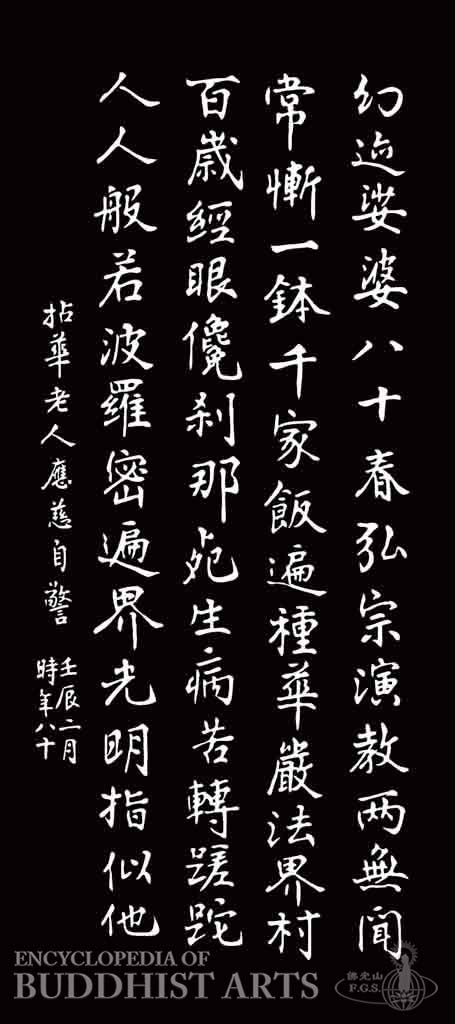 幻迹娑婆八十春弘宗演教两無聞
常慚一鉢千家飯遍種華嚴法界村
百歲經眼儳刹那死生病苦轉蹉跎
人人般若波羅密遍界光明指似他
拈華老人應慈自警
壬辰二月
時年八十
ENCYCLOPEDIA OF
BUDDHIST ARTS
佛光山
F.G.S.